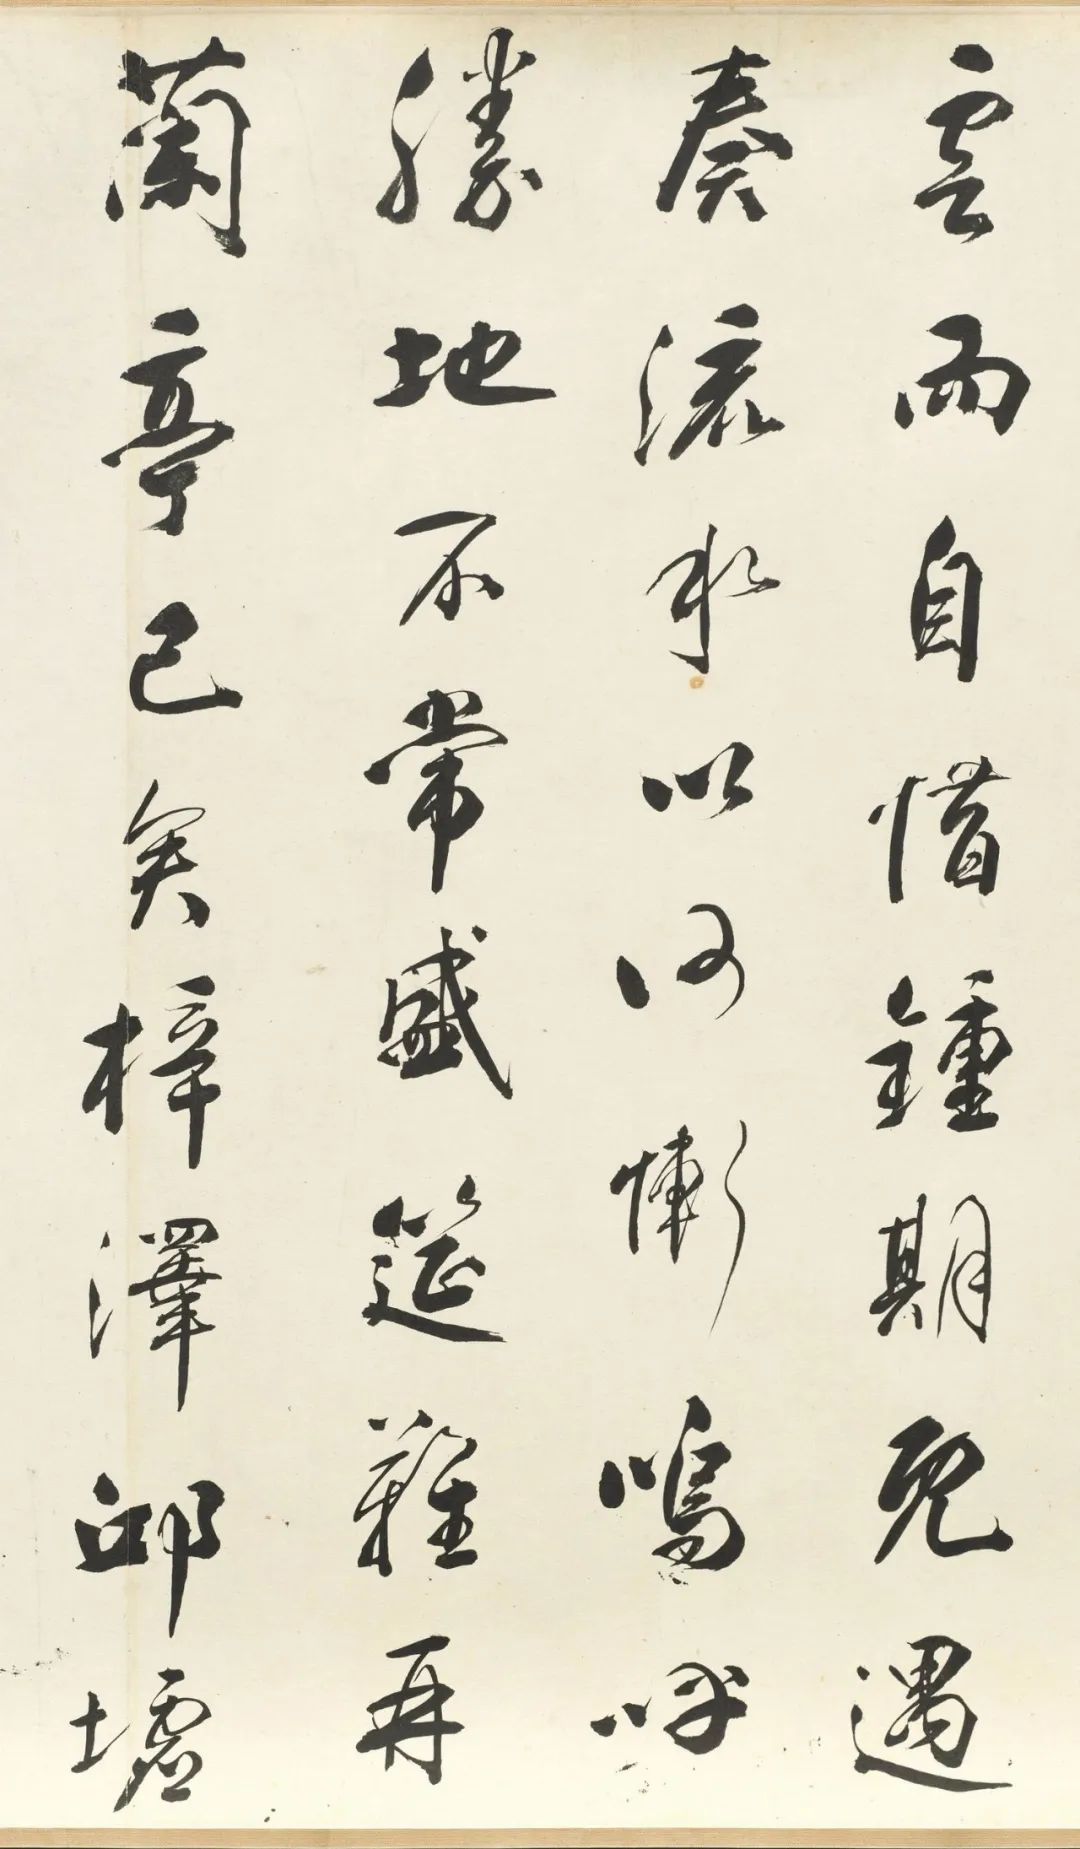 雲而自惜鍾期既遇
奏流水以何慚嗚呼
勝地不常盛筵難再
蘭亭已矣梓澤邱墟